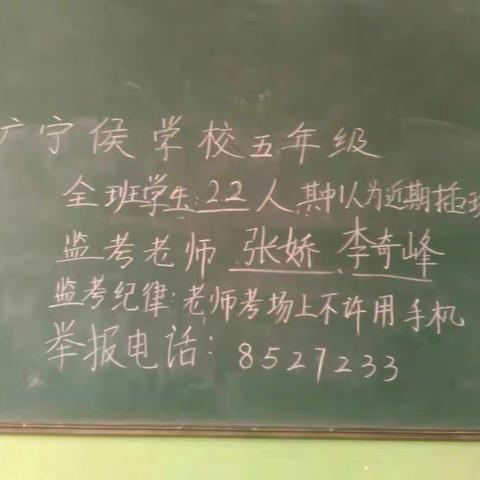 广宁侯学校五年级
全班学生:22人其中1人为近期插班
监考老师 张娇 李奇峰
监考纪律:老师考场上不许用手机
举报电话:8527233